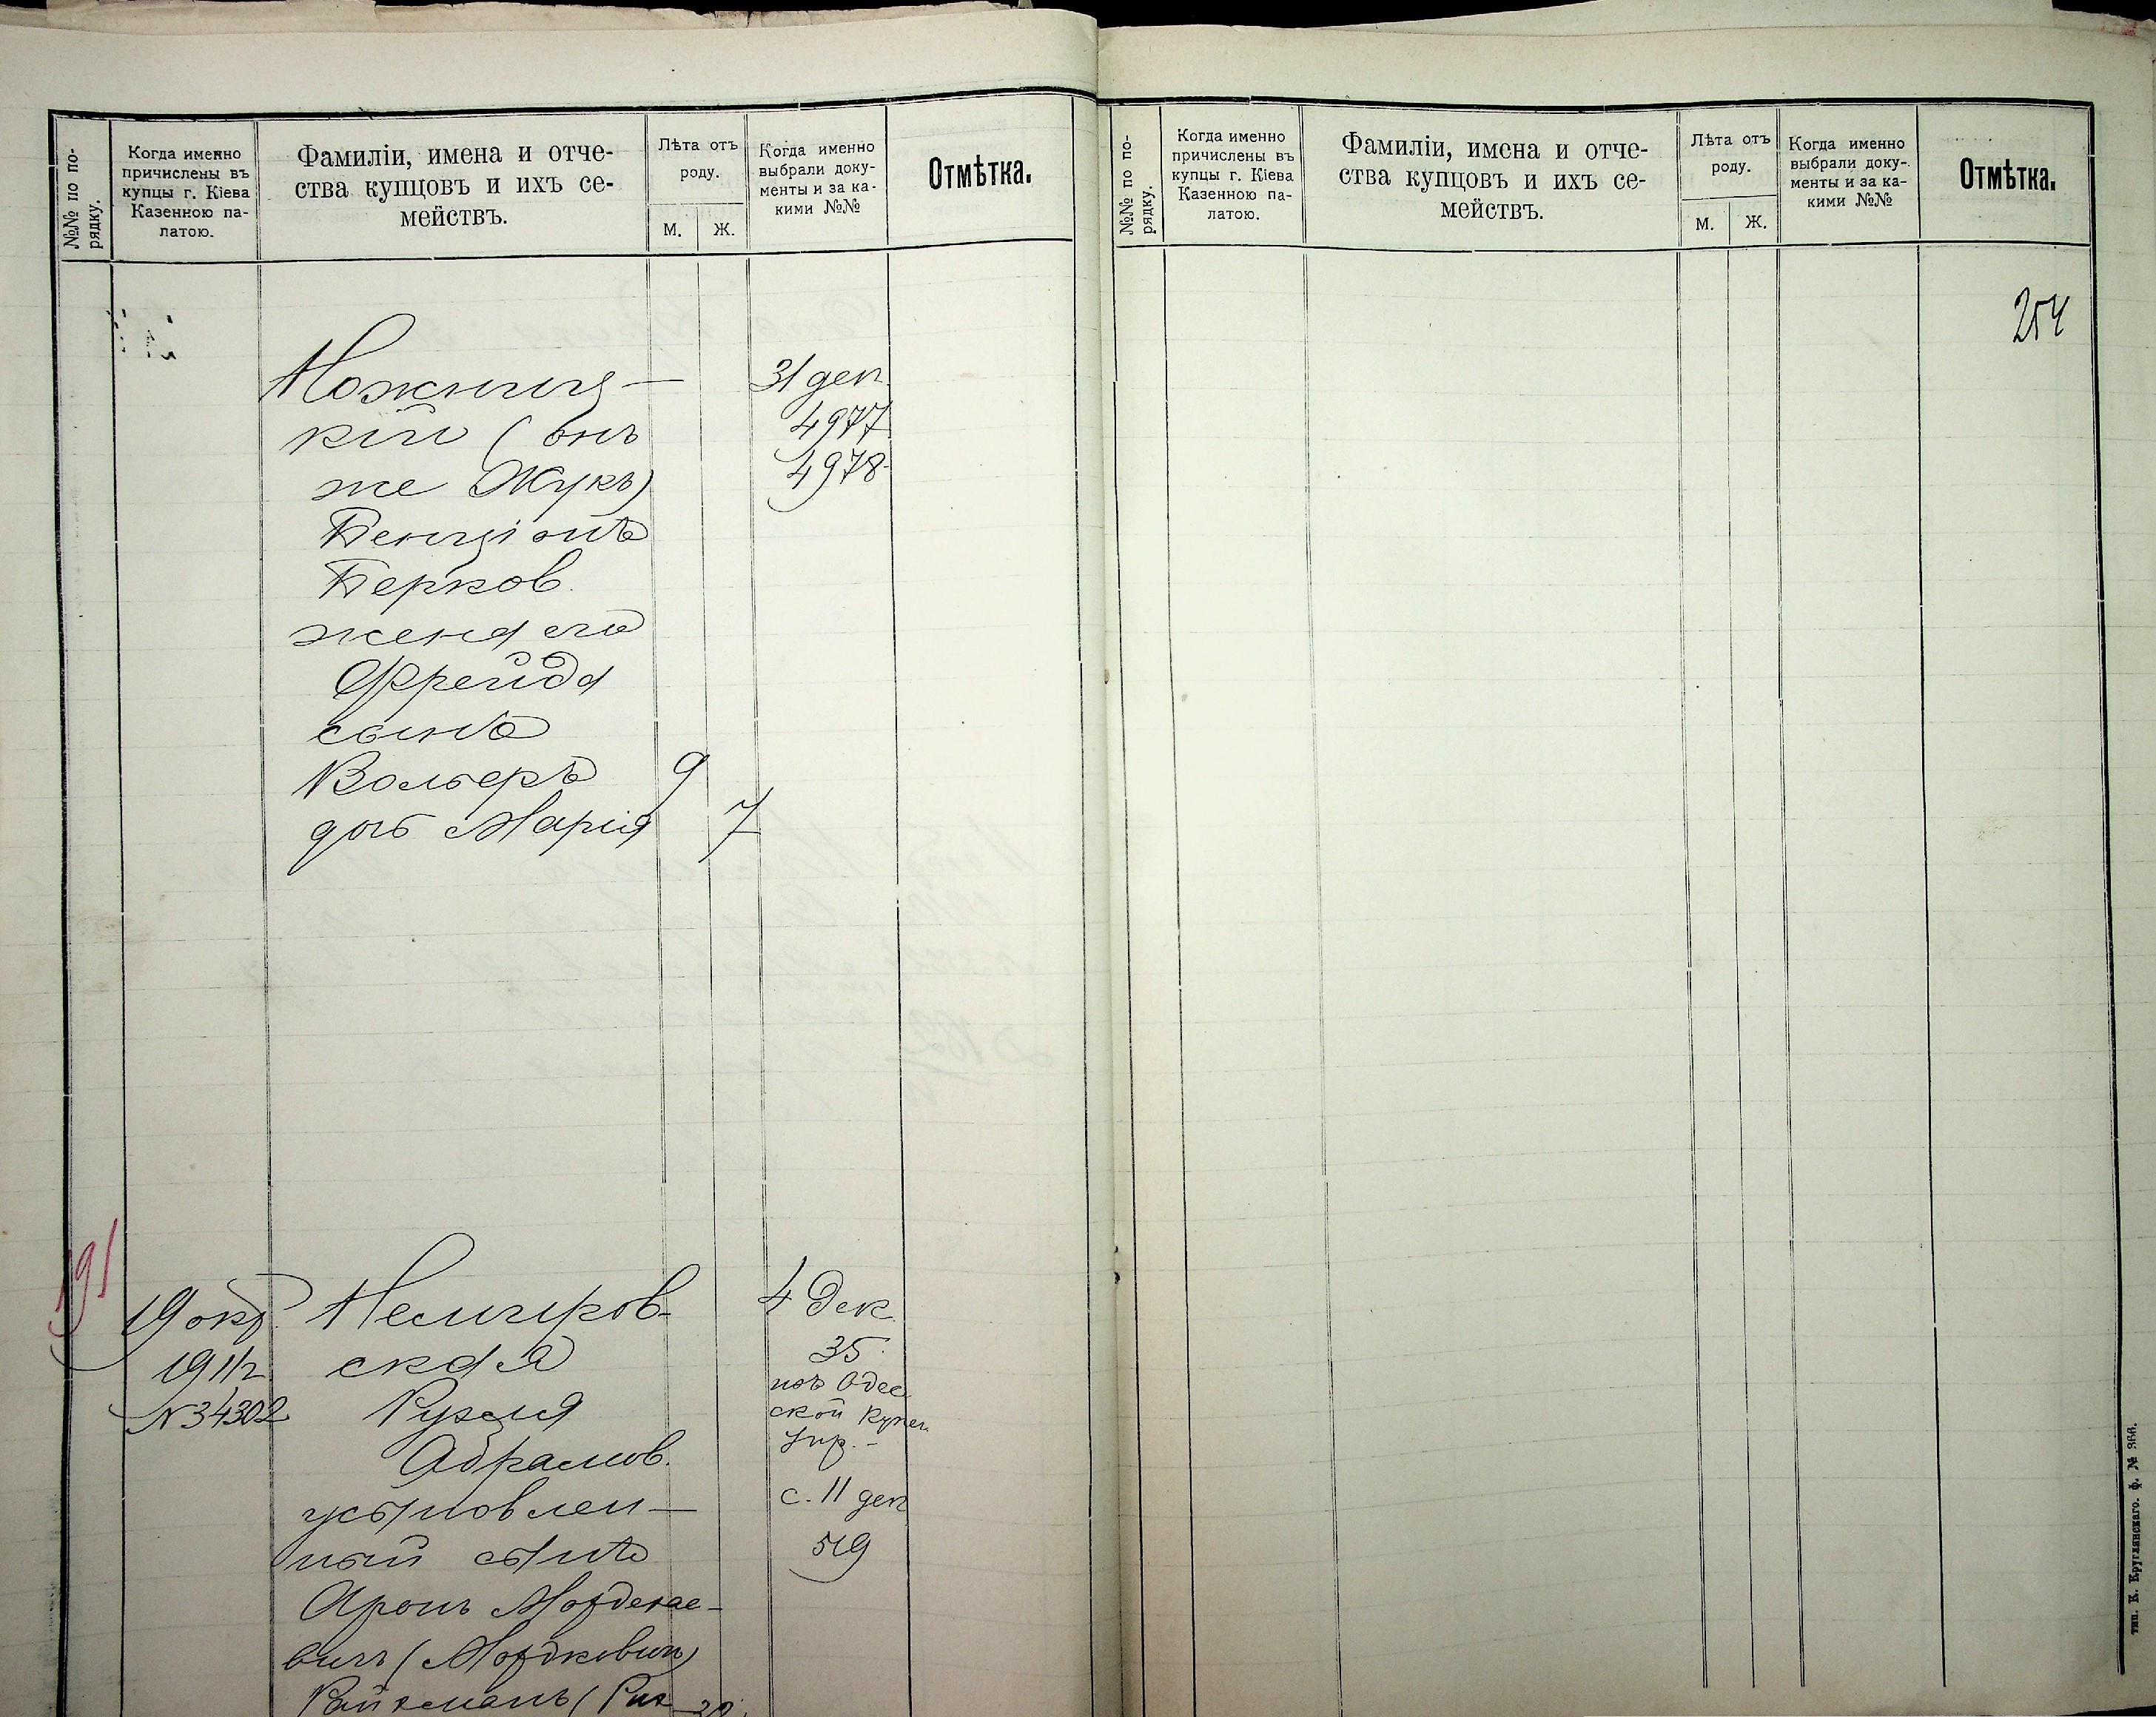 №№ по по-
рядку.
Когда именно
причислены въ
купцы г. Кіева
Казенною па-
латою.
Фамиліи, имена и отче-
ства купцовъ и ихъ се-
мействъ.
Лѣта отъ
роду.
М. Ж.
Когда именно
выбрали доку-
менты и за ка-
кими №№
Отмѣтка.
Ножниц-
кій (онъ
же Жукъ)
Бенціонъ
Берков.
жена его
Фрейда
сынъ
Вольфъ 9
дочь Марія 7
31 дек.
4977
4978
191
19 окт.
1911 г.
№ 34302
Немиров-
ская
Рузя
Абрамов.
усыновлен-
ный сынъ
Аронъ Мордехае-
вичъ (Мордковичъ)
4 Дек.
35
изъ Одес
ской Купеч
Упр. -
с. 11 дек
519
№№ по по-
рядку.
Когда именно
причислены въ
купцы г. Кіева
Казенною па-
латою.
Фамиліи, имена и отче-
ства купцовъ и ихъ се-
мействъ.
Лѣта отъ
роду.
М. Ж.
Когда именно
выбрали доку-
менты и за ка-
кими №№
Отмѣтка.
254
тип. К. Круглянскаго. ф. № 366.